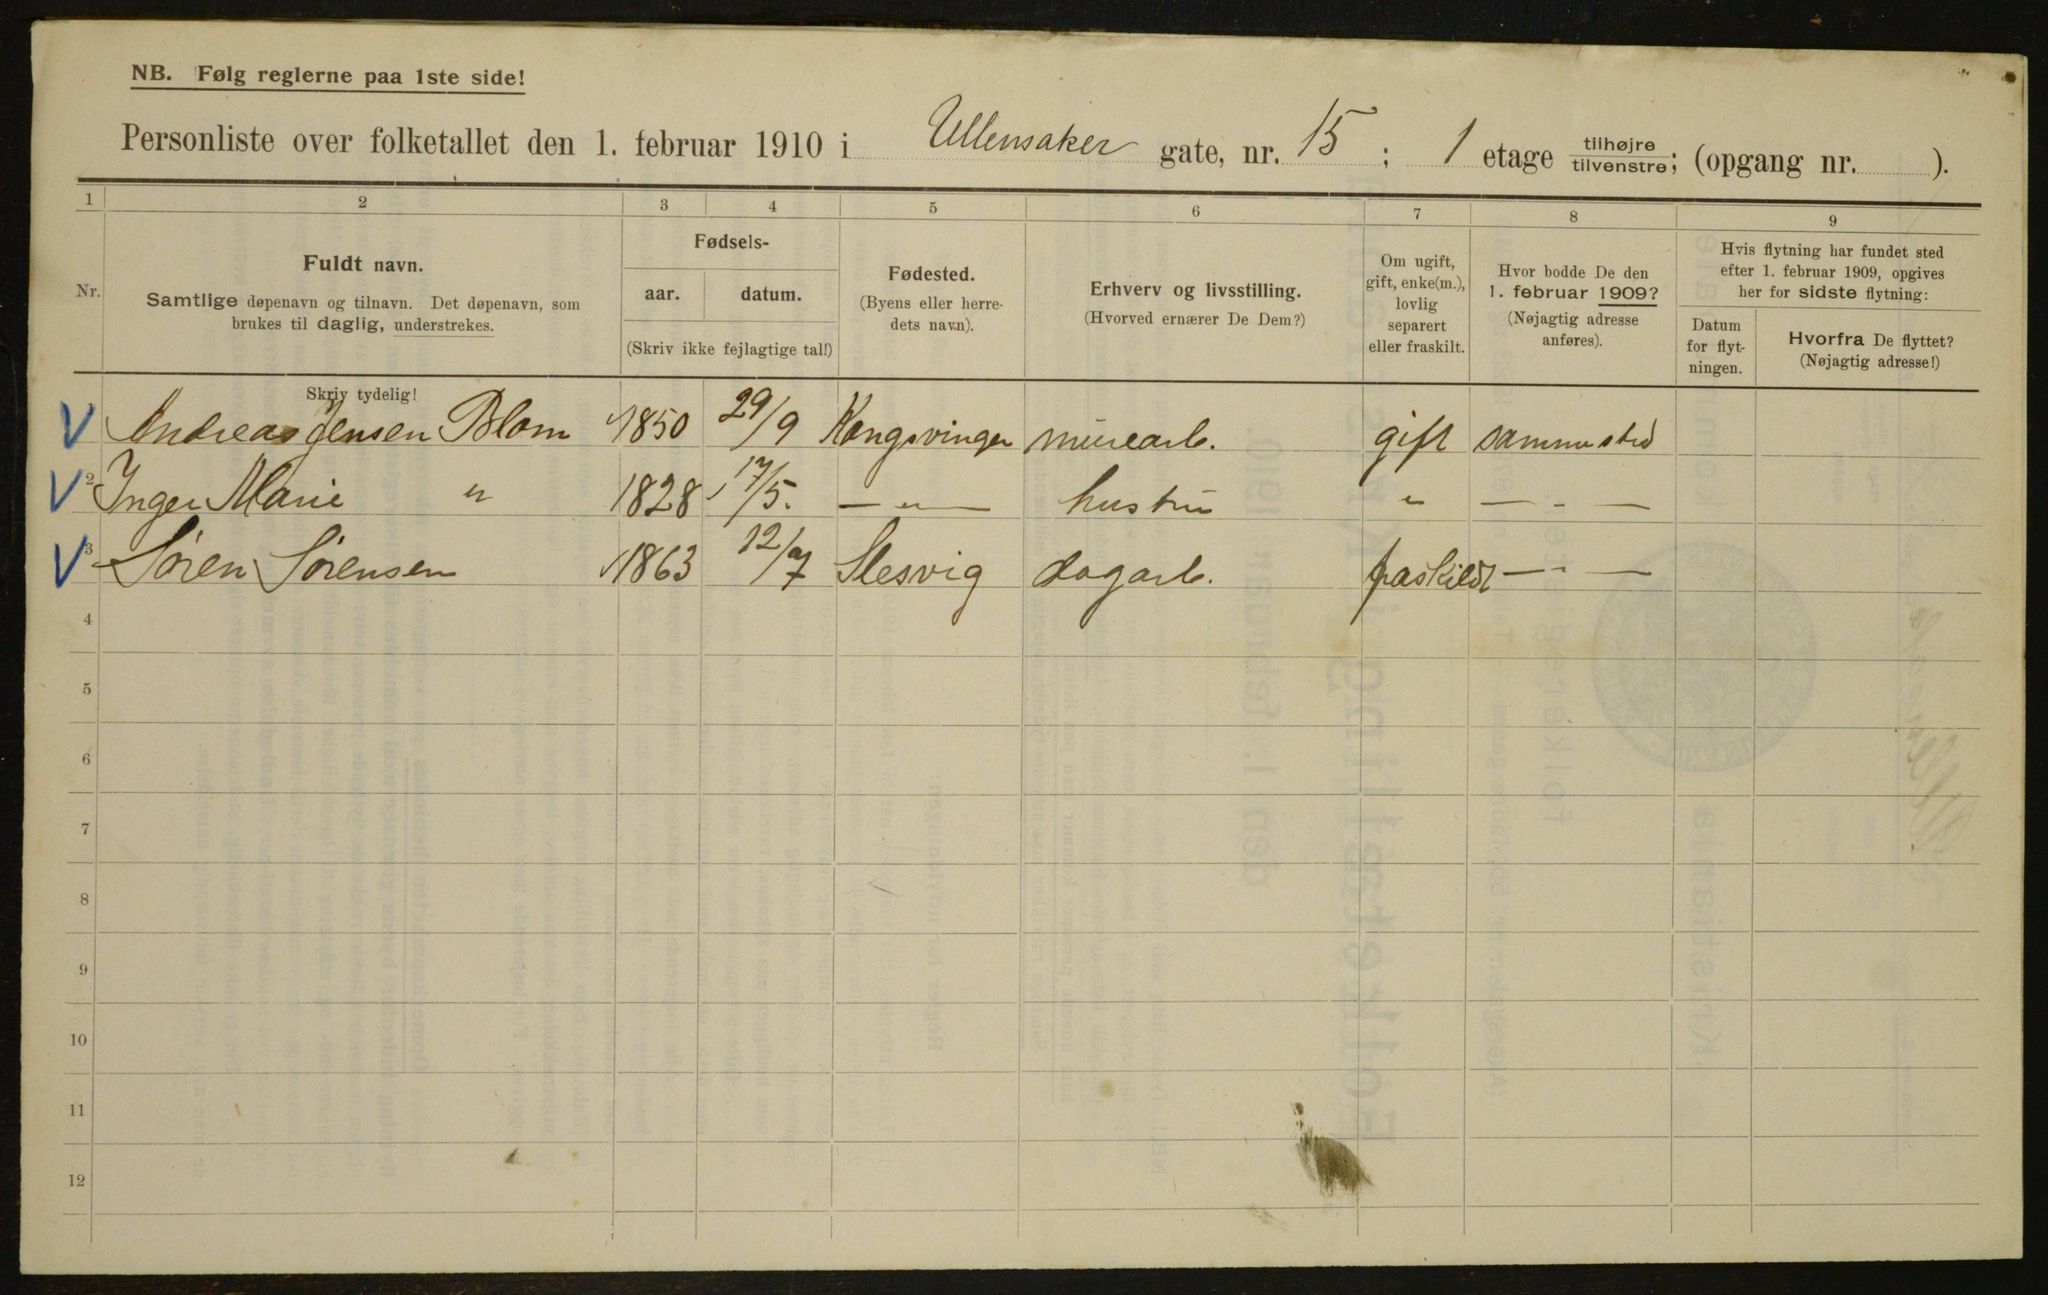 NB. Følg reglerne paa 1ste side!
Personliste over folketallet den 1. februar 1910 i Ullensaker gate, nr. 15 ; 1 etage tilhøjre tilvenstre; (opgang nr. ).
1 2 3 4 5 6 7 8 9
Nr.
Fuldt navn.
Samtlige døpenavn og tilnavn. Det døpenavn, som
brukes til daglig, understrekes.
Fødsels-
aar. datum.
(Skriv ikke fejlagtige tal!)
Fødested.
(Byens eller herre-
dets navn).
Erhverv og livsstilling.
(Hvorved ernærer De Dem?)
Om ugift,
gift, enke(m.),
lovlig
separert
eller fraskilt.
Hvor bodde De den
1. februar 1909?
(Nøjagtig adresse
anføres).
Hvis flytning har fundet sted
efter 1. februar 1909, opgives
her for sidste flytning:
Datum
for flyt-
ningen.
Hvorfra De flyttet?
(Nøjagtig adresse!)
Skriv tydelig!
V Andreas Jensen Blom 1850 29/9 Kongsvinger murearb. gift sammested
V 2 Inger Marie " 1828 17/5. — " — hustru " — " —
V 3 Søren Sørensen 1863 12/7 Slesvig dagarb. fraskildt — " —
4
5
6
7
8
9
10
11
12